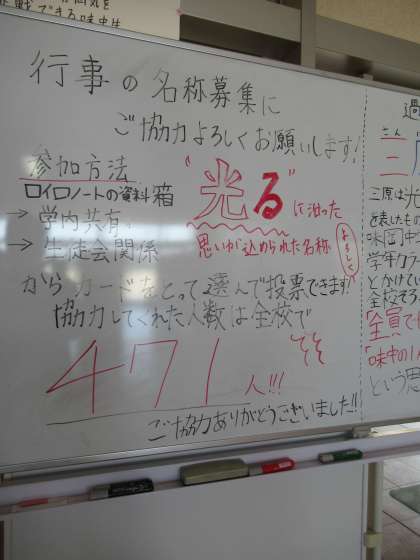 戦できる味中生
行事の名称募集に
ご協力よろしくお願いします!
参加方法
ロイロノートの資料箱
→学内共有
→生徒会関係
"光る"に沿った
思いが込められた名称
からカードをとって選んで投票できます!
協力してくれた人数は全校で
471人!!!
ご協力ありがとうございました!!
過
さん
三原
三原は光
を表したもの
味岡中
学年カラー
とかけてい
全校そろ
全員で
「味中の1人
という思